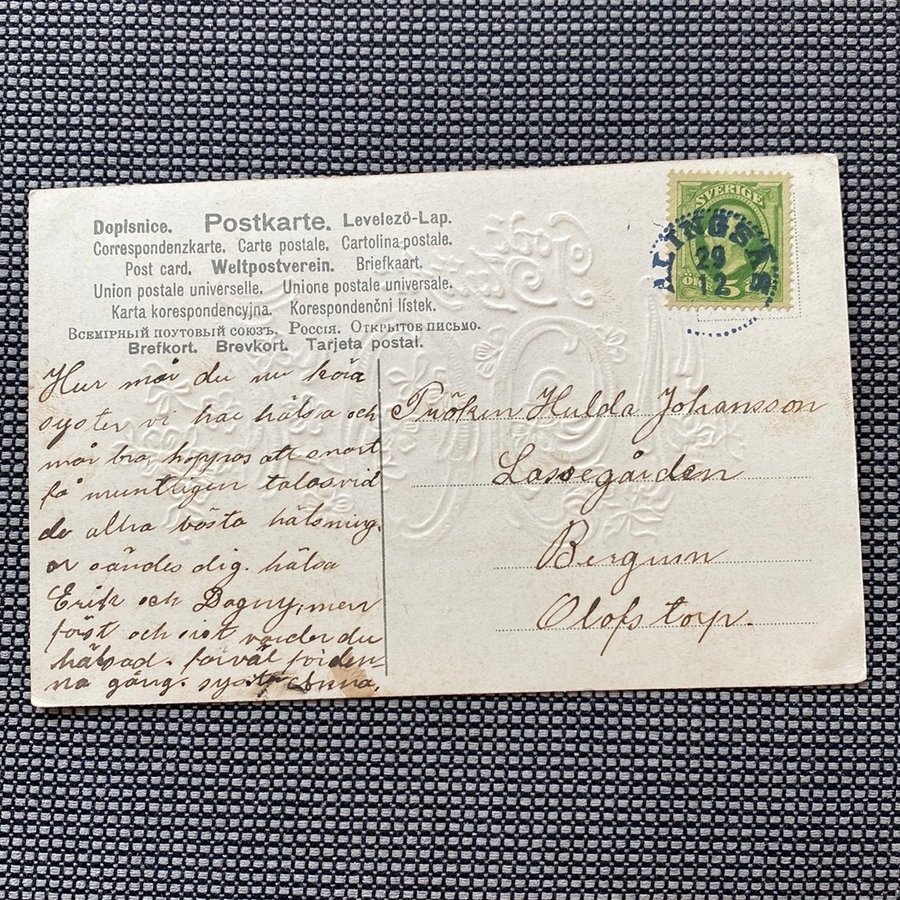 Dopisnice. Postkarte. Levelezö-Lap.
Correspondenzkarte. Carte postale. Cartolina postale.
Post card. Weltpostverein. Briefkaart.
Union postale universelle. Unione postale universale.
Karta korespondencyjna. Korespondenční lístek.
Всемірный поутовый союзъ. Россія. Открытое письмо.
Brefkort. Brevkort. Tarjeta postal.
SVERIGE
5 ÖRE
ALINGSÅS
29
12
Hur mår du nu kära
syster vi har hälsa och
mår bra, hoppas att snart
få muntligen talas vid
de allra bästa hälsning
ar sändes dig. hälsa
Erik och Dagny, men
först och sist varder du
hälsad. farväl för den
na gång. syster Anna,
Fröken Hulda Johansson
Lassegården
Bergum
Olofstorp.